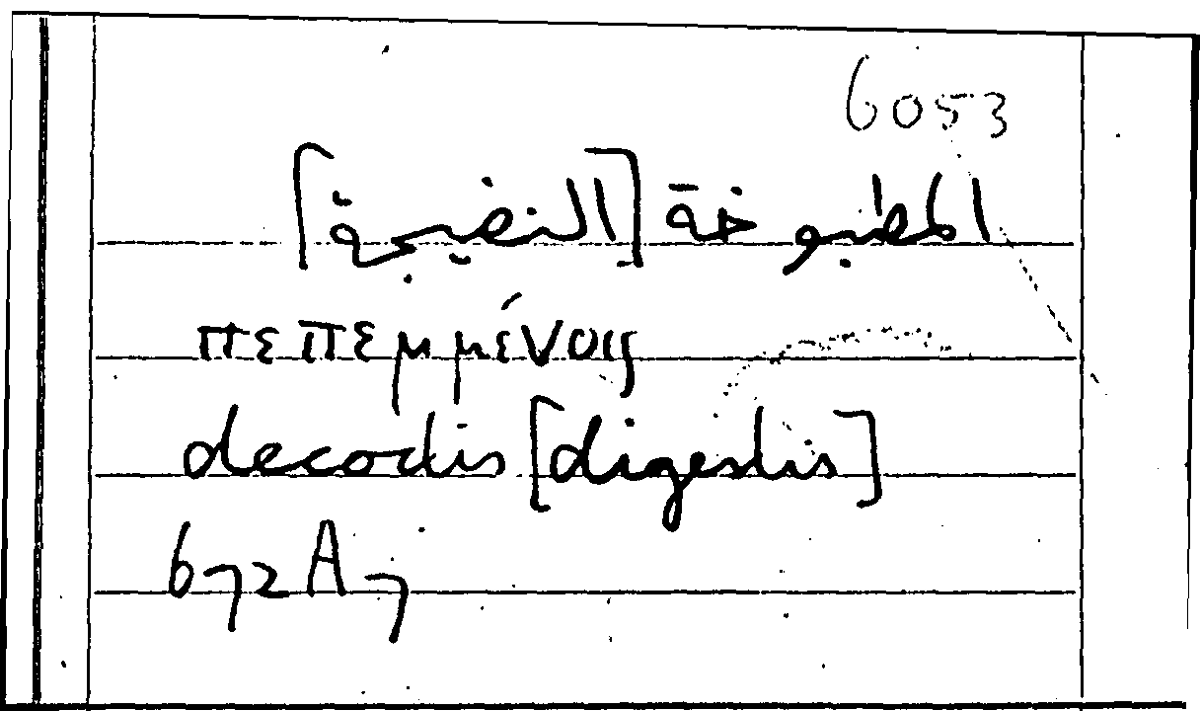 6053
المطبوخة [النضيجة]
πεπεμμένοις
decoctis [digestis]
672A7